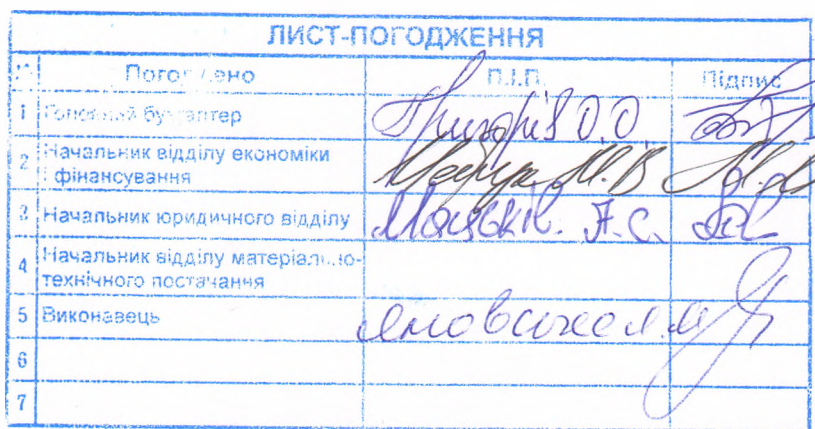 ЛИСТ-ПОГОДЖЕННЯ
№ Погоджено П.І.П. Підпис
1 Головний бухгалтер О.О
2 Начальник відділу економіки
і фінансування М.В
3 Начальник юридичного відділу Мацьків. А.С.
4 Начальник відділу матеріально-
технічного постачання
5 Виконавець Яновська Л.М
6
7